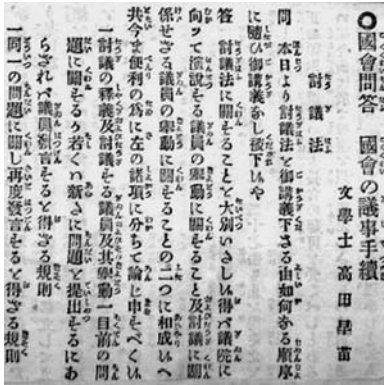 ◯國會問答 國會の議事手續
文學士 高田早苗
討議法
問 本日より討議法を御講義下さる由如何なる順序
に隨ひ御講義なし被下候や
答 討議法に關することを大別いたし候得バ議院に
向ッて演説する議員の擧動に關すること及討議に關
係せざる議員の擧動に關することの二つに相成候へ
共今ま便利の爲に左の諸項に分ちて論じ申すべく候
一討議の釋義及討議する議員及其擧動一目前の問
題に關するか若くハ新たに問題を提出するにあ
らざれバ議員發言するを得ざる規則
一同一の問題に關し再度發言するを得ざる規則